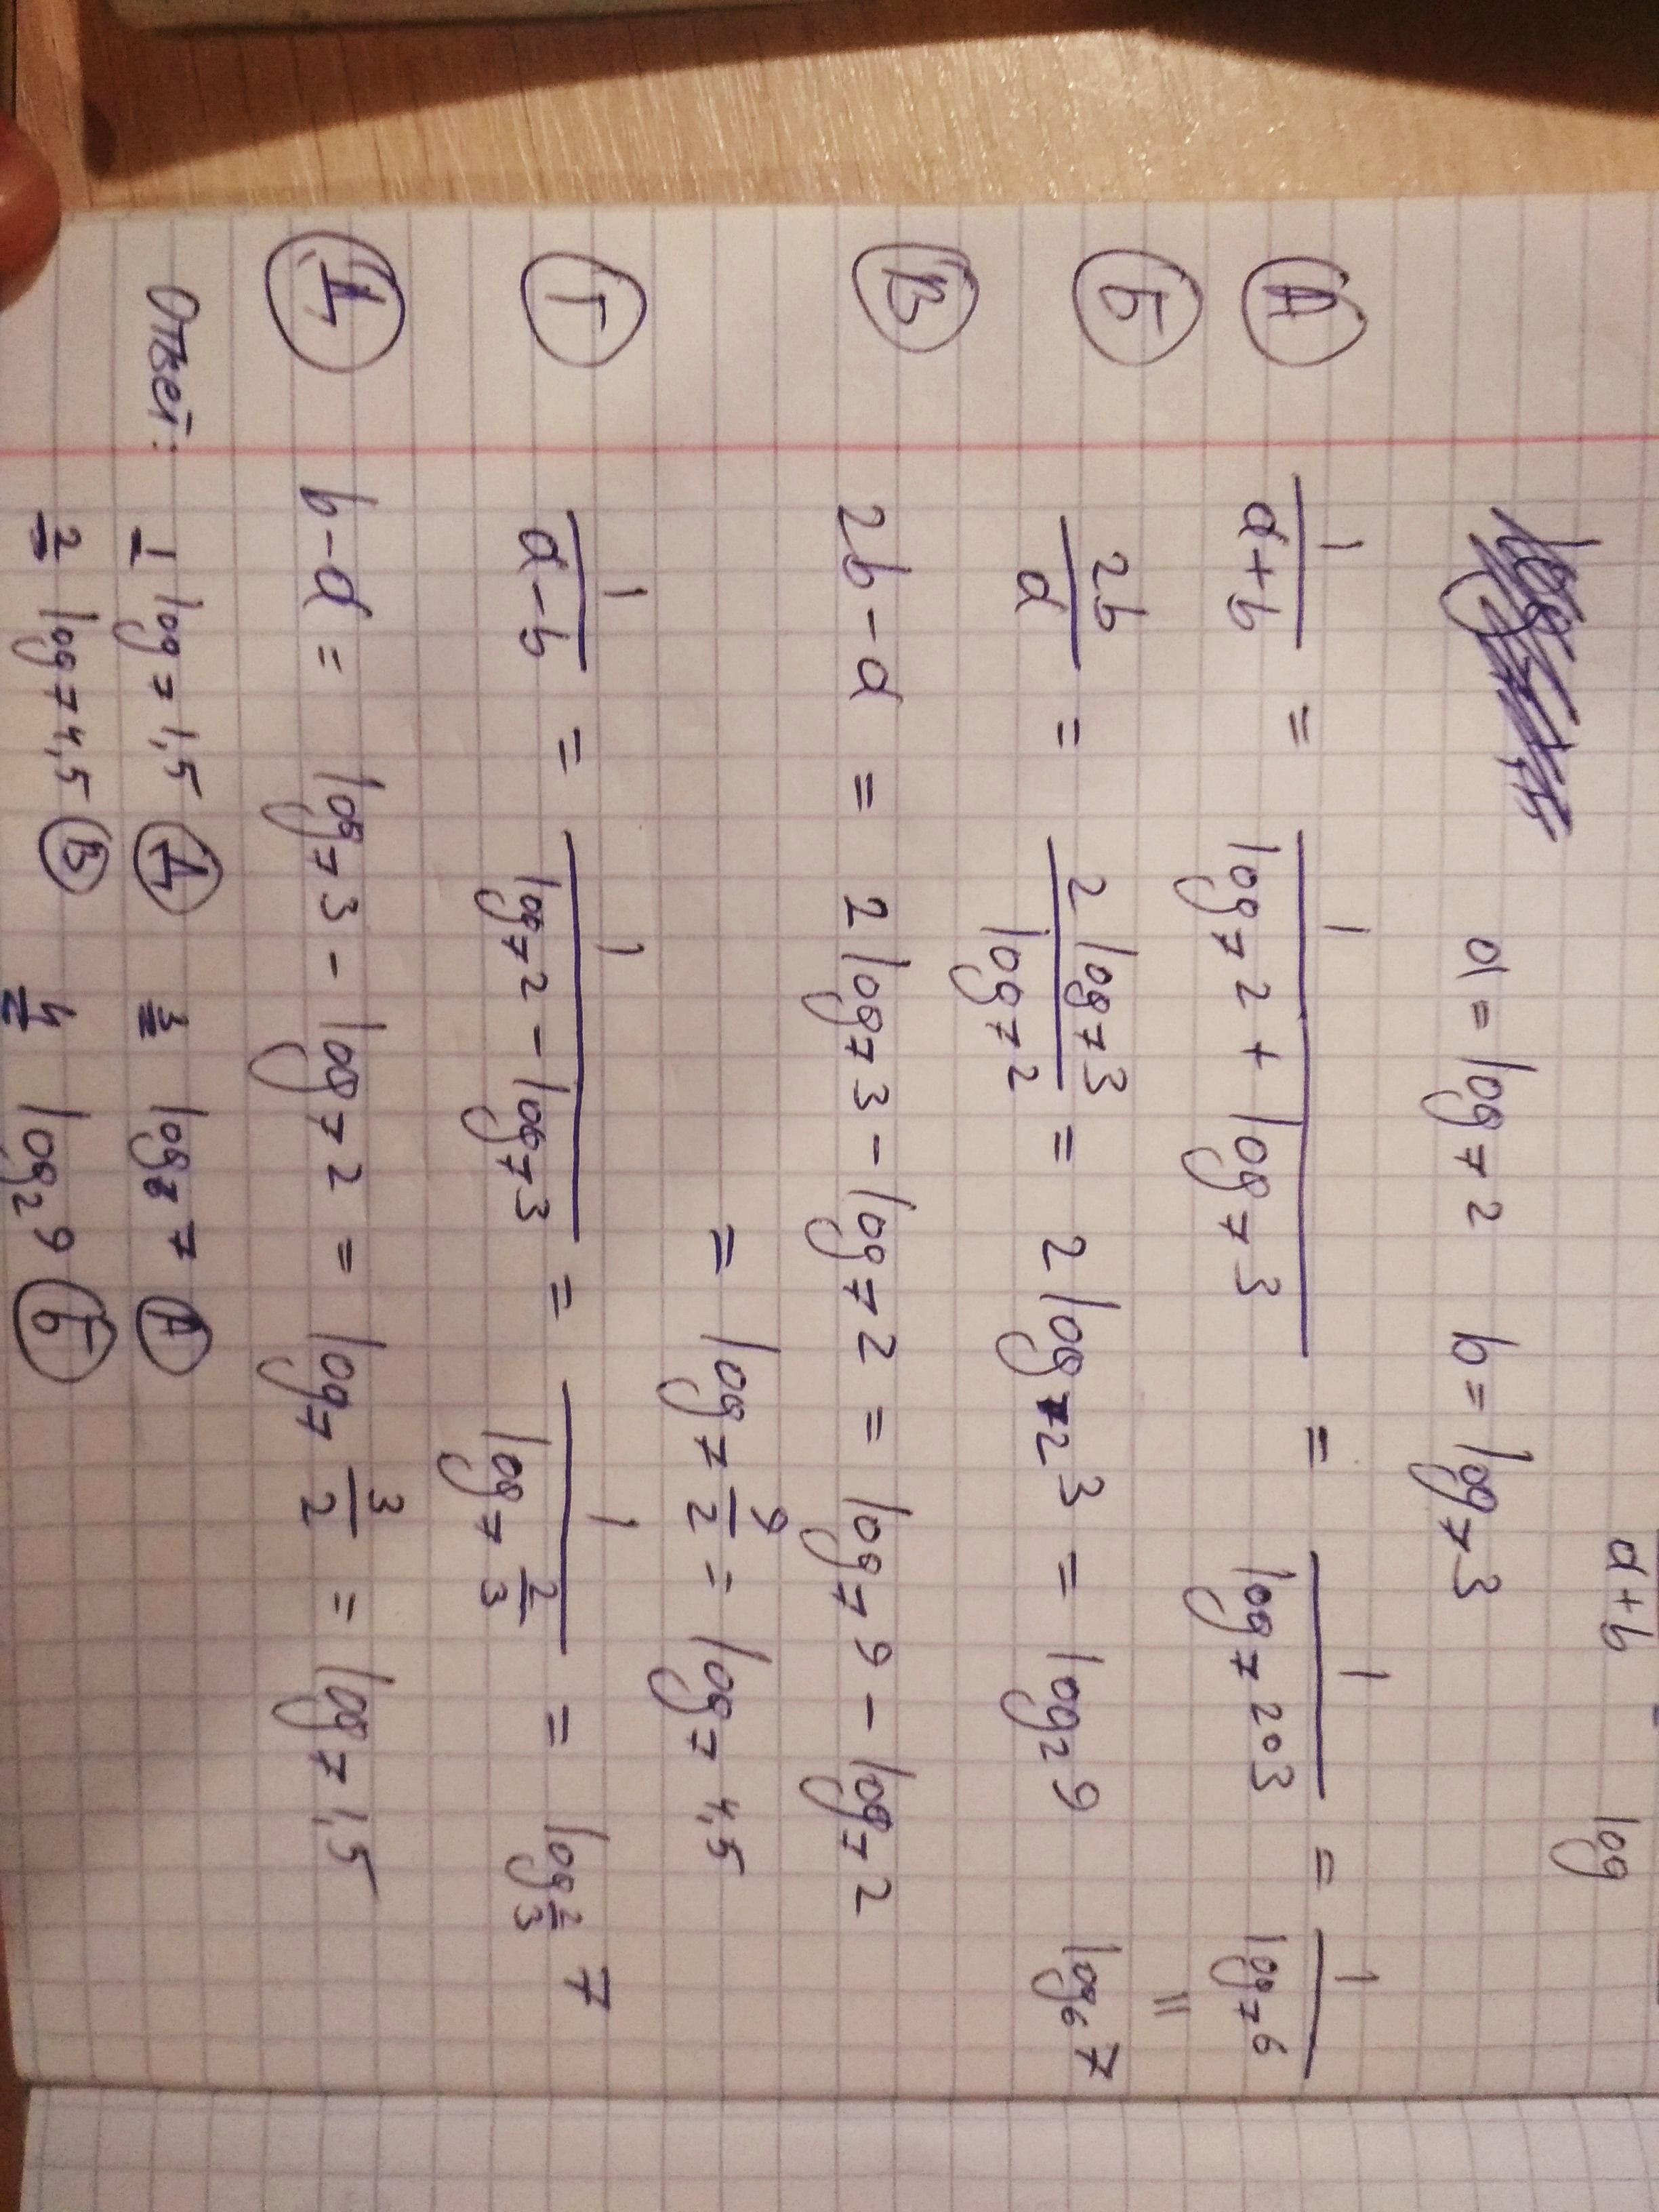 a+b log
a = log₇ 2 b = log₇ 3
А 1/(a+b) = 1/(log₇ 2 + log₇ 3) = 1/(log₇ 2∘3) = 1/(log₇ 6)
= log₆ 7
Б 2b/a = (2 log₇ 3)/(log₇ 2) = 2 log₂ 3 = log₂ 9
В 2b - a = 2 log₇ 3 - log₇ 2 = log₇ 9 - log₇ 2
= log₇ 9/2 = log₇ 4,5
Г 1/(a-b) = 1/(log₇ 2 - log₇ 3) = 1/(log₇ 2/3) = log_(2/3) 7
Д b-a = log₇ 3 - log₇ 2 = log₇ 3/2 = log₇ 1,5
Ответ: 1 log₇ 1,5 Д 3 log₆ 7 А
2 log₇ 4,5 В 4 log₂ 9 Б